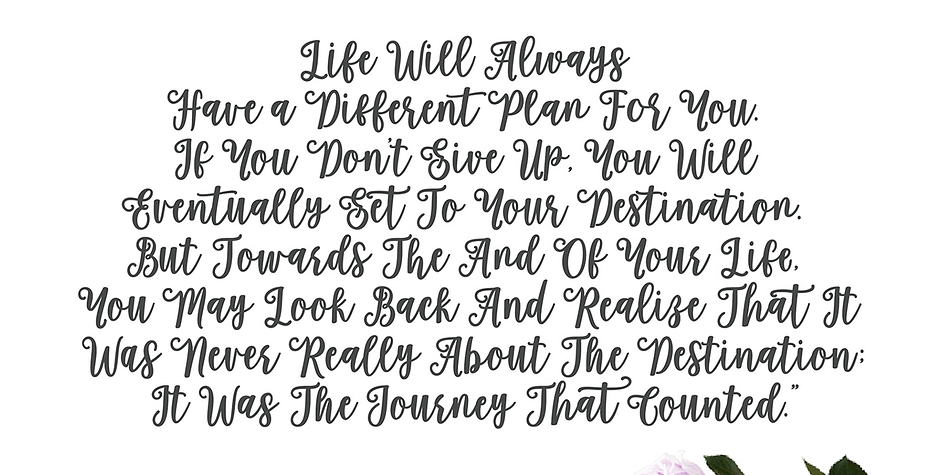 Life Will Always
Have a Different Plan For You.
If You Don't Give Up, You Will
Eventually Get To Your Destination.
But Towards The And Of Your Life,
You May Look Back And Realize That It
Was Never Really About The Destination;
It Was The Journey That Counted.”